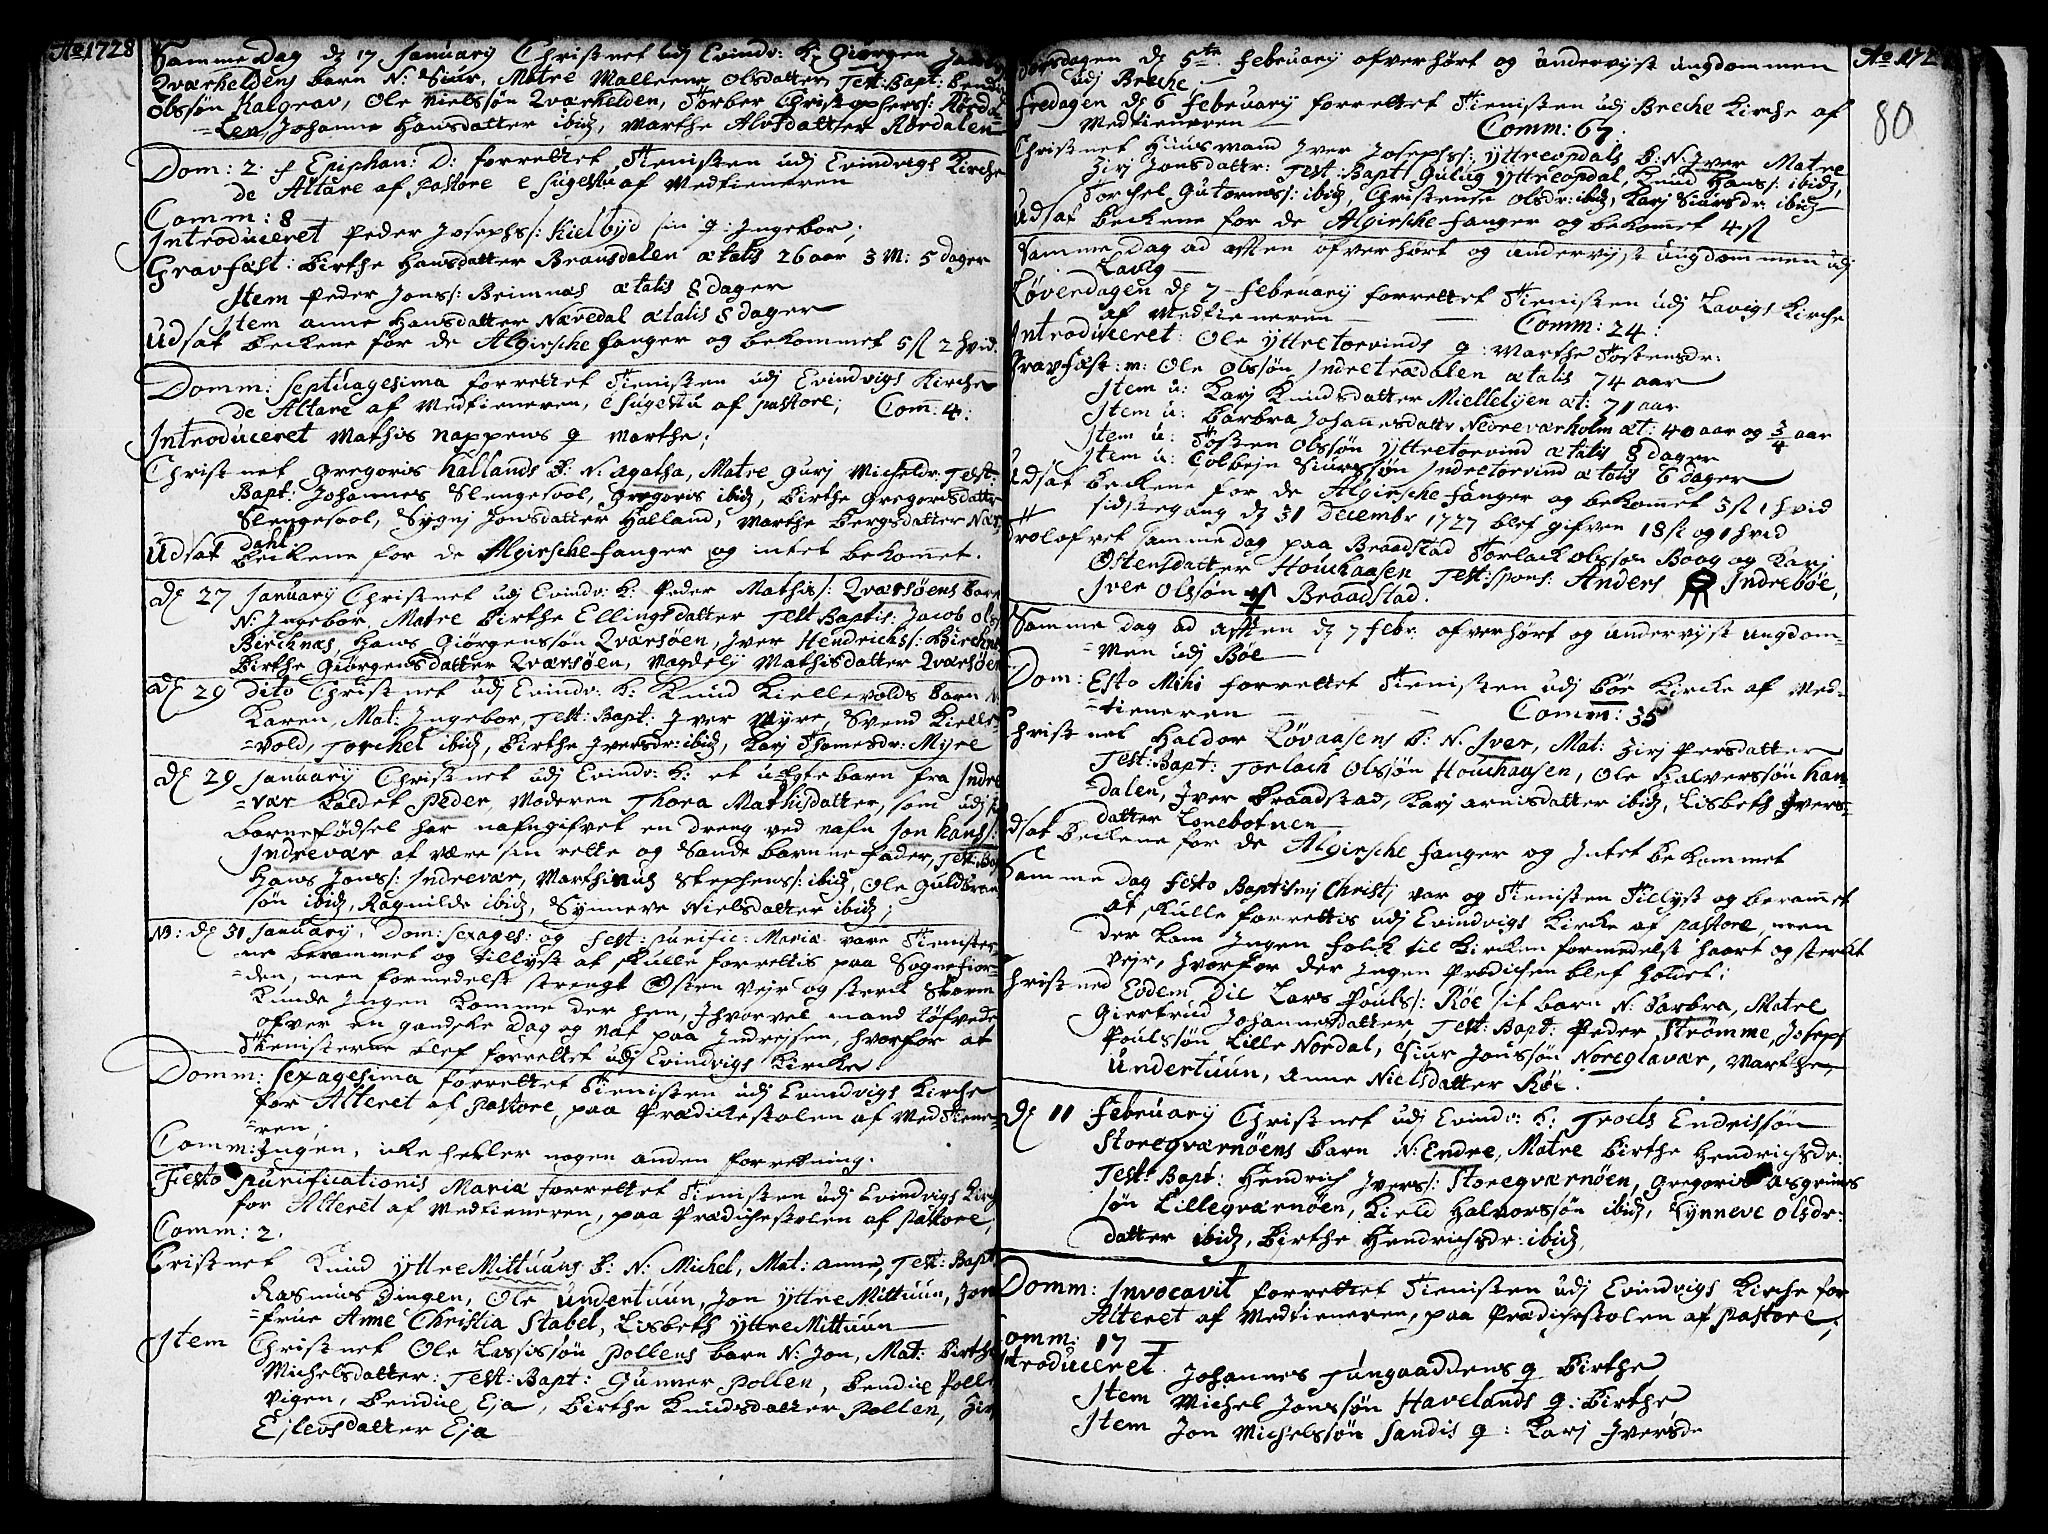 Ao 1728
Samme Dag dj 17 January Christnet udj Evindv: K: Giørgen
Qværheldens barn N: Siur, Matre Malleene Olsdatter, Test: Bapt: Bendix
Olssøn Kalgrav, Ole Nielssøn Qværhelden, Torber Christophers: Rørda-
=len, Johanne Hansdatter ibid, Marthe Alvsdatter Rørdalen
Dom: 2. p Epiphan: D: forrettet Tienisten udj Evindvigs Kirche
de Altare af Pastore e sugestu af Medtieneren
Comm: 8
Introduceret Peder Josephs: Kielbyd sin q: Ingebor;
Gravfæst: Birthe Hansdatter Bransdalen ætatis 26 aar 3 M: 5 dager
Item Peder Jons: Breimnæs ætatis 8 dager
Item anne Hansdatter Nævedal ætatis 8 dager
Udsat beckene for de Algirsche fanger og bekommet 5 sk 2 hvid.
Domm: Septuagesima forrettet Tienisten udj Evindvigs Kirche
de Altare af Medtieneren, e sugestu af Pastore; Com: 4:
Introduceret Mathis Nappens q Marthe;
Christnet Gregoris Hallands b: N: Agatha, Matre Gurj Michelsdr: Test:
Bapt: Johannes Slengesool, Gregoris ibid, Birthe Gregorisdatter
Slengesool, Sygnj Jonsdatter Halland, Marthe Bergsdatter Næv
dahl.
Udsat beckene for de Algirsche fanger og intet bekommet.
dj 27 January Christnet udj Evindv: K: Peder Mathis: Qværsøens barn
N: Ingebor, Matre Birthe Ellingsdatter Test Baptis: Jacob Ols:
Bircknæs, Hans Giørgenssøn Qværsøen, Iver Hendrichs: Birchnæs
Birthe Giørgensdatter Qværsøen, Magdelj Mathisdatter Qværsøen
dj 29 Dito Christnet udj Evindv: K: Knud Kiellevolds barn N:
Karen, Mat: Ingebor, Test: Bapt: Iver Myre, Svend Kielle=
=vold, Torchel ibid, Birthe Iversdr: ibid, Karj Thomesdr: Myre
dj 29 January Christnet udj Evindv: K: et uægte barn fra Indre
=vær kaldet Peder, Moderen Thora Mathisdatter, som udj sin
barnefødsel har nafngifvet en dreng ved nafn Jon Hans:
Indrevær at være sin rette og sande barnefader, Test: Bapt:
Hans Jons: Indrevær, Marthinus Stephens: ibid, Ole Guldbrans
søn ibid, Ragnilde ibid, Synneve Nielsdatter ibid;
NB: dj 31 January, Dom: Sexages: og Fest: Purific: Mariæ vare Tienister=
ne berammet og tillyst at skulle forrettis paa Sognefior=
=den, men formedelst strengt Østen vejr og sterck Storm
Kunde Ingen Komme der hen, Ihvorvel mand tøfvede
ofver en gandske Dag og nat paa Indrejsen, hvorfor at
Tienisterne blef forrettet udj Evindvigs Kircke
Domm: Sexagesima forrettet Tienisten udj Evindvigs Kirche
for Alteret af Pastore, paa Prædickestolen af Medtiene=
=ren;
Comm: Ingen, icke heller nogen anden forretning.
Festo Purificationis Mariæ forrettet Tienisten udj Evindvigs Kirche
for Alteret af Medtieneren, paa Prædickestolen af Pastore;
Comm: 2.
Cristnet Knud Yttre Mittuuns b: N: Michel, Mat: anne, Test: Bapt:
Rasmus Dingen, Ole Undertuun, Jon Yttre Mittuun, Jom
=frue Anne Christia Stabel, Lisbeth Yttre Mittuun
Item Christnet Ole Lassissøn Pollens barn N: Jon, Mat: Birthe
Michelsdatter: Test: Bapt: Gunner Pollen, Bendix Polle
vigen, Bendix Eja, Birthe Knudsdatter Pollen,
Ejlevsdatter Eja
Ao 172
80
Torsdagen dj 5te February ofverhørt og undervjst ungdommen
udj Breche
Fredagen dj 6 February forrettet Tienisten udj Breche Kirche af
Medtieneren Comm: 67.
Christnet Huusmand Iver Josephs: Yttreopdals b: N: Iver Matre
Zirj Jonsdattr: Test: Bapt: Gulug Yttreopdal, Knud Hans: ibid,
Torchel Gutormss: ibid, Christense Olsdr: ibid, Karj Siursdr: ibid
Udsat beckene for de Algirsche fanger og bekommet 4 sk
Samme dag ad aften ofverhørt og undervjst ungdommen udj
Lavig
Løverdagen dj 7 February forrettet Tienisten udj Lavigs Kirche
af Medtieneren Comm: 24:
Introduceret: Ole Yttretorvinds q: Marthe Tostensdr:
Gravfæst: m: Ole Olssøn Indretrædalen ætatis 74 aar
Item u: Karj Knudsdatter Miellelijen æt: 71 aar
Item u: Barbra Johannesdattr Nedreværholm æt: 40 aar og 3/4 aar
Item u: Tosten Olssøn Yttretorvind ætatis 8 dager
Item u: Colbejn Siurssøn Indretorvind ætatis 6 dager
Udsat beckene for de Algirsche fanger og bekommet 3 sk 1 hvid
sidste gang dj 31 Decembr 1727 blef gifven 18 sk og 1 hvid
Trolofvet samme dag paa Braadstad Torlack Olssøn Boog og Kari
Østensdatter Houchaasen Test: spons: Anders Indrebøe,
Iver Olssøn Braadstad.
Samme dag ad aften dj 7 febr: ofverhørt og undervjst ungdom=
=men udj Bøe
Dom: Esto Mihi forrettet Tienisten udj Bøe Kircke af Med=
=tieneren Comm: 35
Christnet Haldor Løvaasens b: N: Iver, Mat: Zirj Persdatter
Test: Bapt: Torlach Olssøn Houchaasen, Ole Halverssøn Han
=dalen, Iver Braadstad, Karj Arnisdatter ibid, Lisbeth Ivers=
datter Lonebotnen
Udsat beckene for de Algirsche fanger og Intet bekommet
Samme dag Festo Baptismj Christj var og Tienisten tillyst og berammet
at skulle forrettis udj Evindvigs Kircke af Pastore, men
der kom Ingen folck til Kircken formedelst haart og sterckt
vejr, hvorfor der Ingen Prædicken blef holdet:
Christned Eodem Die Lars Pouls: Røe sit barn N: Barbra, Matre
Giertrud Johannesdatter, Test: Bapt: Peder Strømme, Joseph
Poulssøn Lille Nordal, Siur Jonssøn Noreglavær, Marthe
Undertuun, Anne Nielsdatter Røe.
dj 11 February Christnet udj Evindv: K: Troels Endrissøn
Storeqværnøens barn N: Endre, Matre Birthe Hendrichsdr:
Test: Bapt: Hendrich Ivers: Storeqværnøen, Gregoris Asgrims
søn Lilleqværnøen, Kield Halvorssøn ibid, Synneve Olsdr=
datter ibid, Birthe Hendrichsdr: ibid,
Domm: Invocavit forrettet Tienisten udj Evindvigs Kirche for
Alteret af Medtieneren, paa Prædickestolen af Pastore;
Comm: 17
Introduceret Johannes Tungaaddens q Birthe
Item Michel Jonssøn Havelands q: Birthe
Item Jon Michelssøn Sandis q: Karj Iversdr